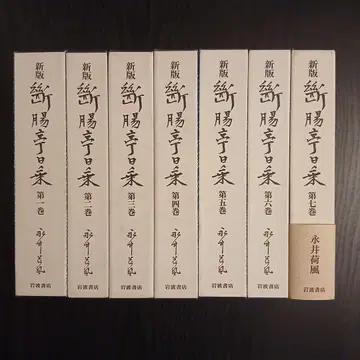 新版 斷腸亭日乗 第一巻 永井荷風 岩波書店
新版 斷腸亭日乗 第二巻 永井荷風 岩波書店
新版 斷腸亭日乗 第三巻 永井荷風 岩波書店
新版 斷腸亭日乗 第四巻 永井荷風 岩波書店
新版 斷腸亭日乗 第五巻 永井荷風 岩波書店
新版 斷腸亭日乗 第六巻 永井荷風 岩波書店
新版 斷腸亭日乗 第七巻 永井荷風 岩波書店